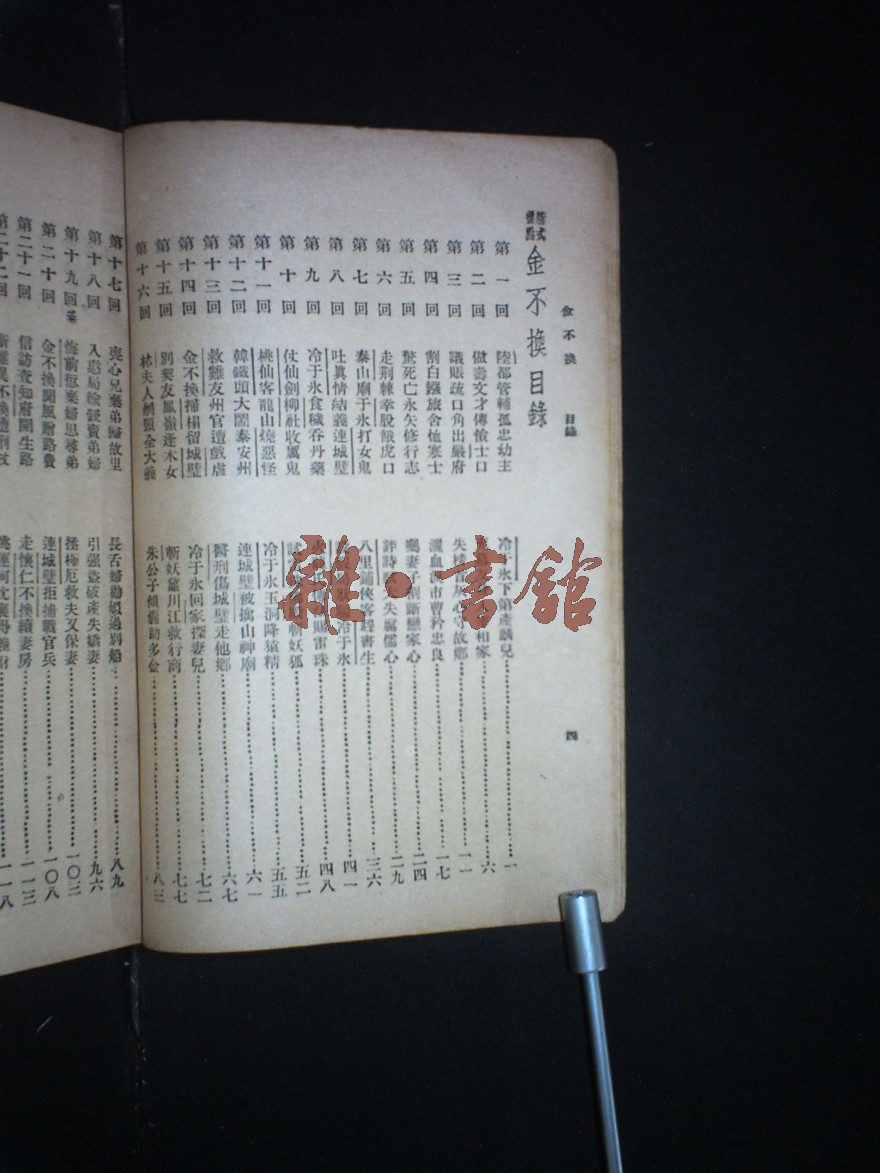 金不換 目錄 四
新式標點 金不換目錄
第一回 陸都管輔孤忠幼主 冷于氷下第產麟兒 一
第二回 做壽文才傳儉士口 六
第三回 議賬疏口角出嚴府 失榜首灰心守故鄉 一一
第四回 割白鏹旅舍恤寒士 灑血溪市曹矜忠良 一七
第五回 驚死亡永矢修行志 囑妻子割斷戀家心 二四
第六回 走荊棘幸脫餓虎口 評詩賦失腐儒心 二九
第七回 泰山廟于氷打女鬼 八里鋪俠客趕書生 三六
第八回 吐真情結義連城璧 冷于氷 四一
第九回 冷于氷食穢吞丹藥 雷珠 四八
第十回 仗仙劍柳社收厲鬼 斬妖狐 五二
第十一回 桃仙客龍山燒惡怪 冷于氷玉洞降猿精 五五
第十二回 韓鐵頭大鬧泰安州 連城璧被擒山神廟 六一
第十三回 救難友州官遭戲虐 醫刑傷城璧走他鄉 六七
第十四回 金不換掃榻留城璧 冷于氷回家探妻兒 七二
第十五回 別契友鳳嶺逢木女 斬妖黿川江救行商 七七
第十六回 林夫人刎頸全大義 朱公子傾囊助多金 八三
第十七回 喪心兄棄弟歸故里 長舌婦勸姐過別船 八九
第十八回 入賭局輸錢賣弟婦 引強盜破產失嬌妻 九六
第十九回 悔前愆棄婦思尋弟 拯極厄救夫又保妻 一〇三
第二十回 金不換聞風贈路費 連城璧拒捕戰官兵 一〇八
第二十一回 信訪查知府開生路 走懷仁不換續妻房 一一三
第二十二回 不換遭刑杖 一一八
雜·書館